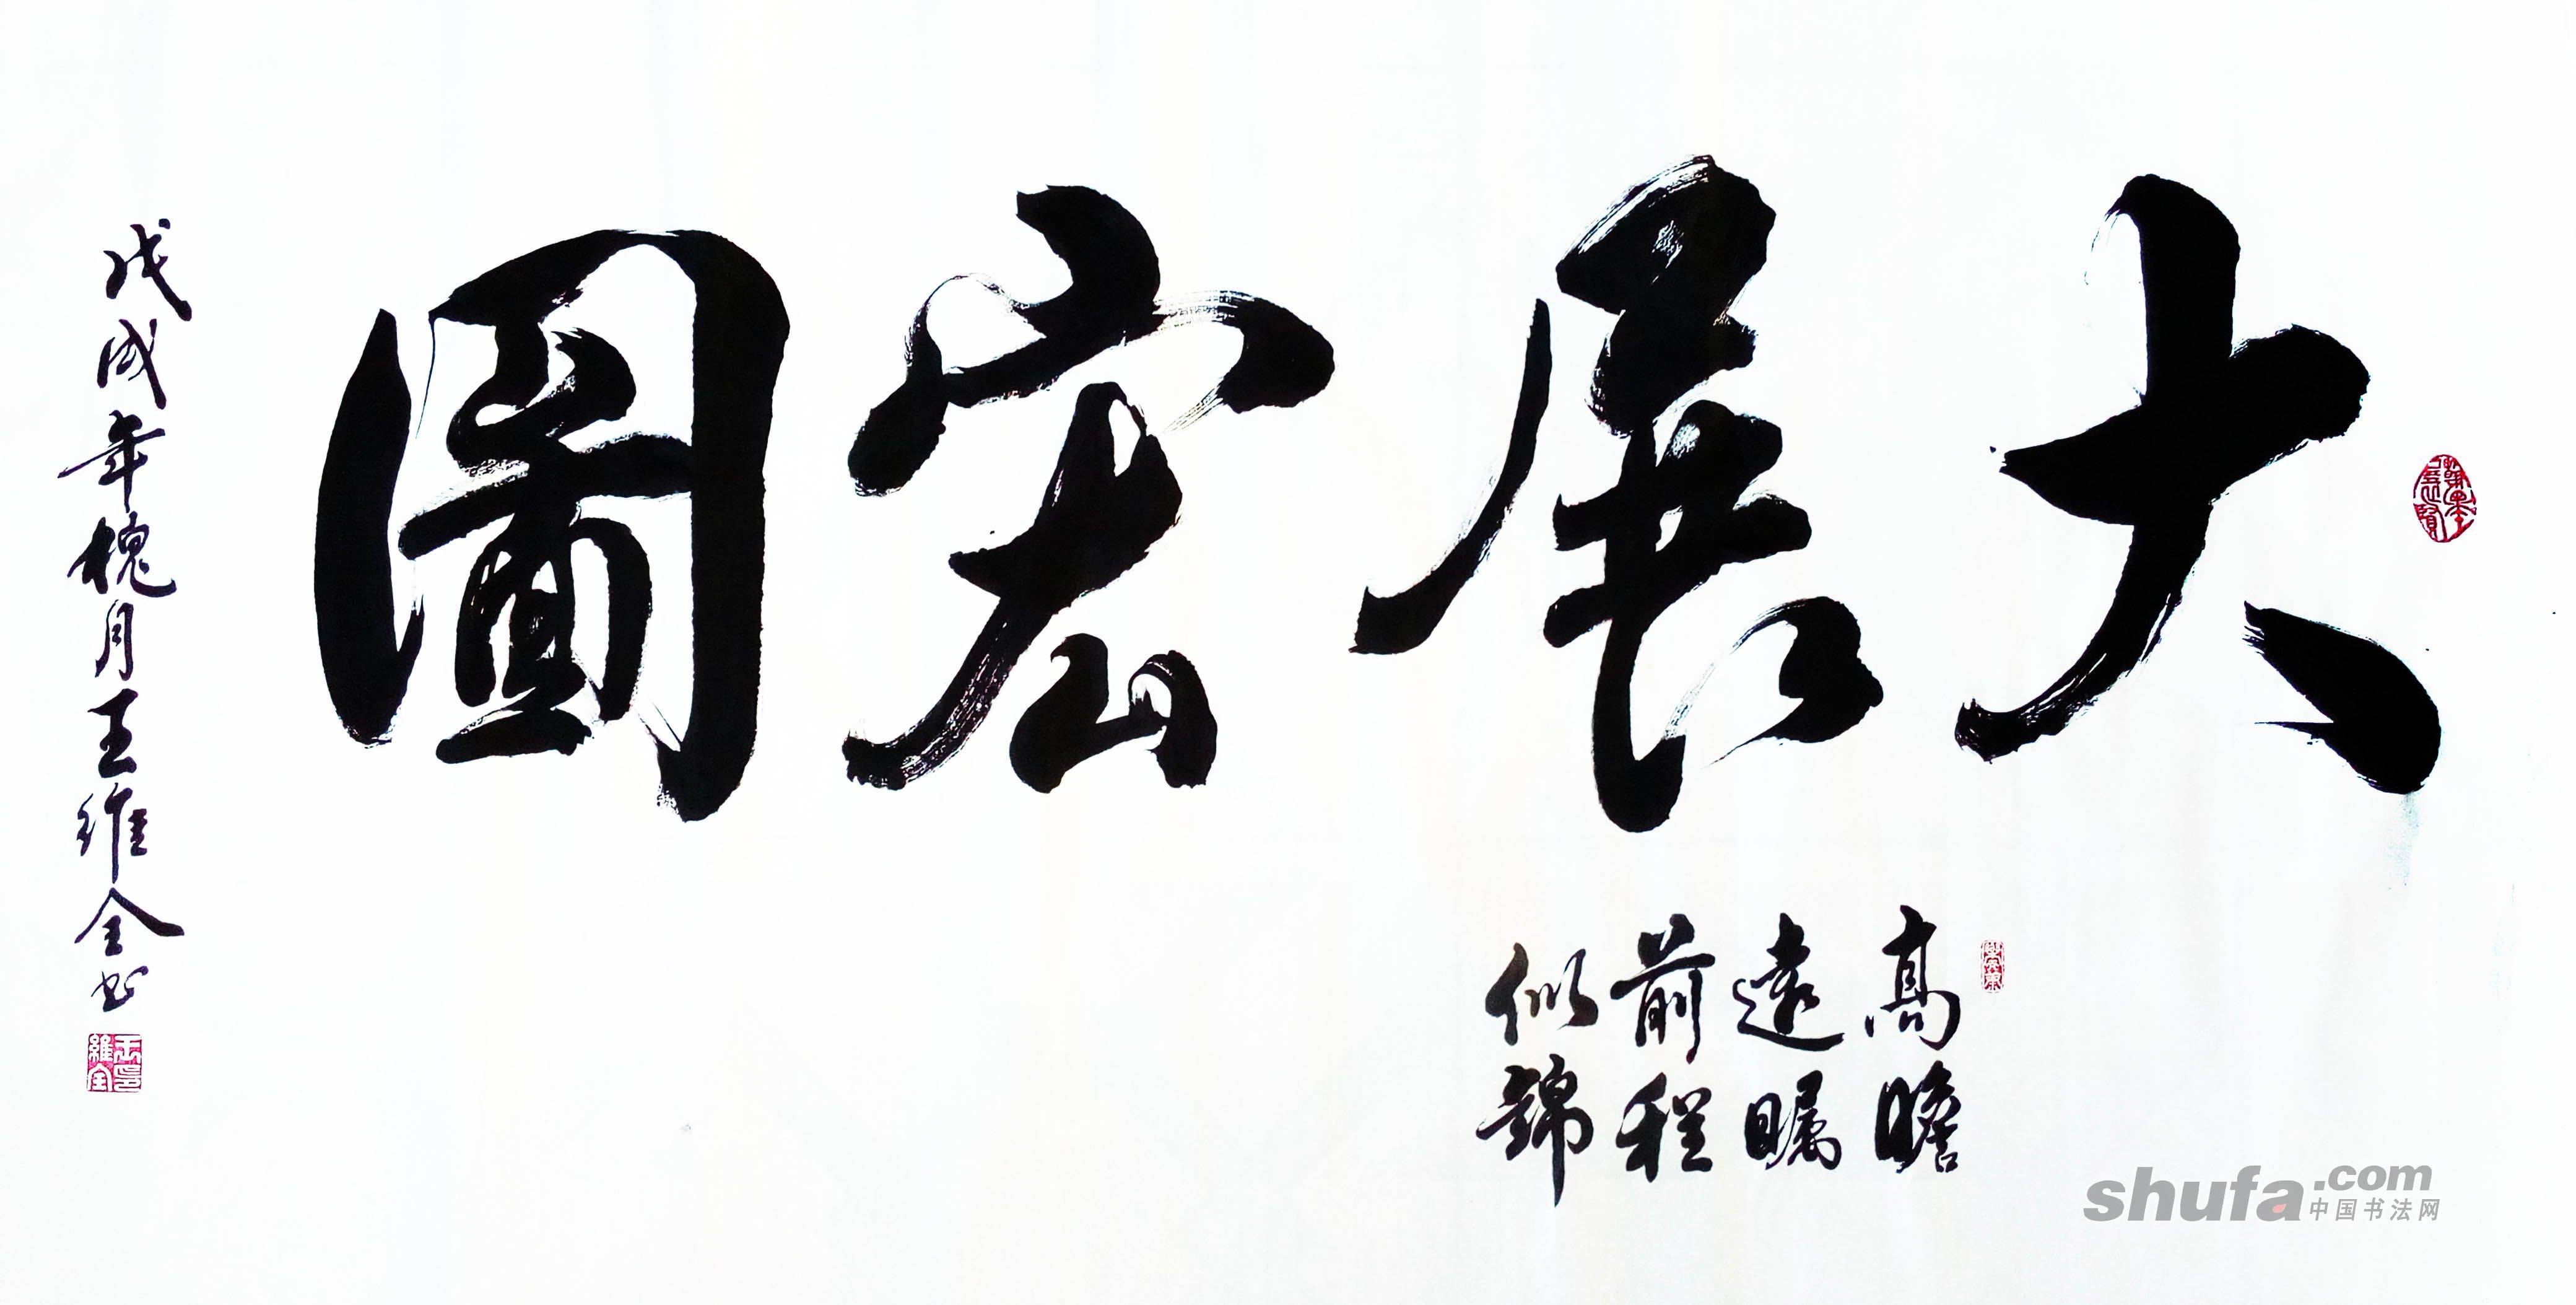 大展宏圖
高瞻
遠矚
前程
似錦
戊戌年槐月王維全书
王印維全
shufa.com
中国书法网